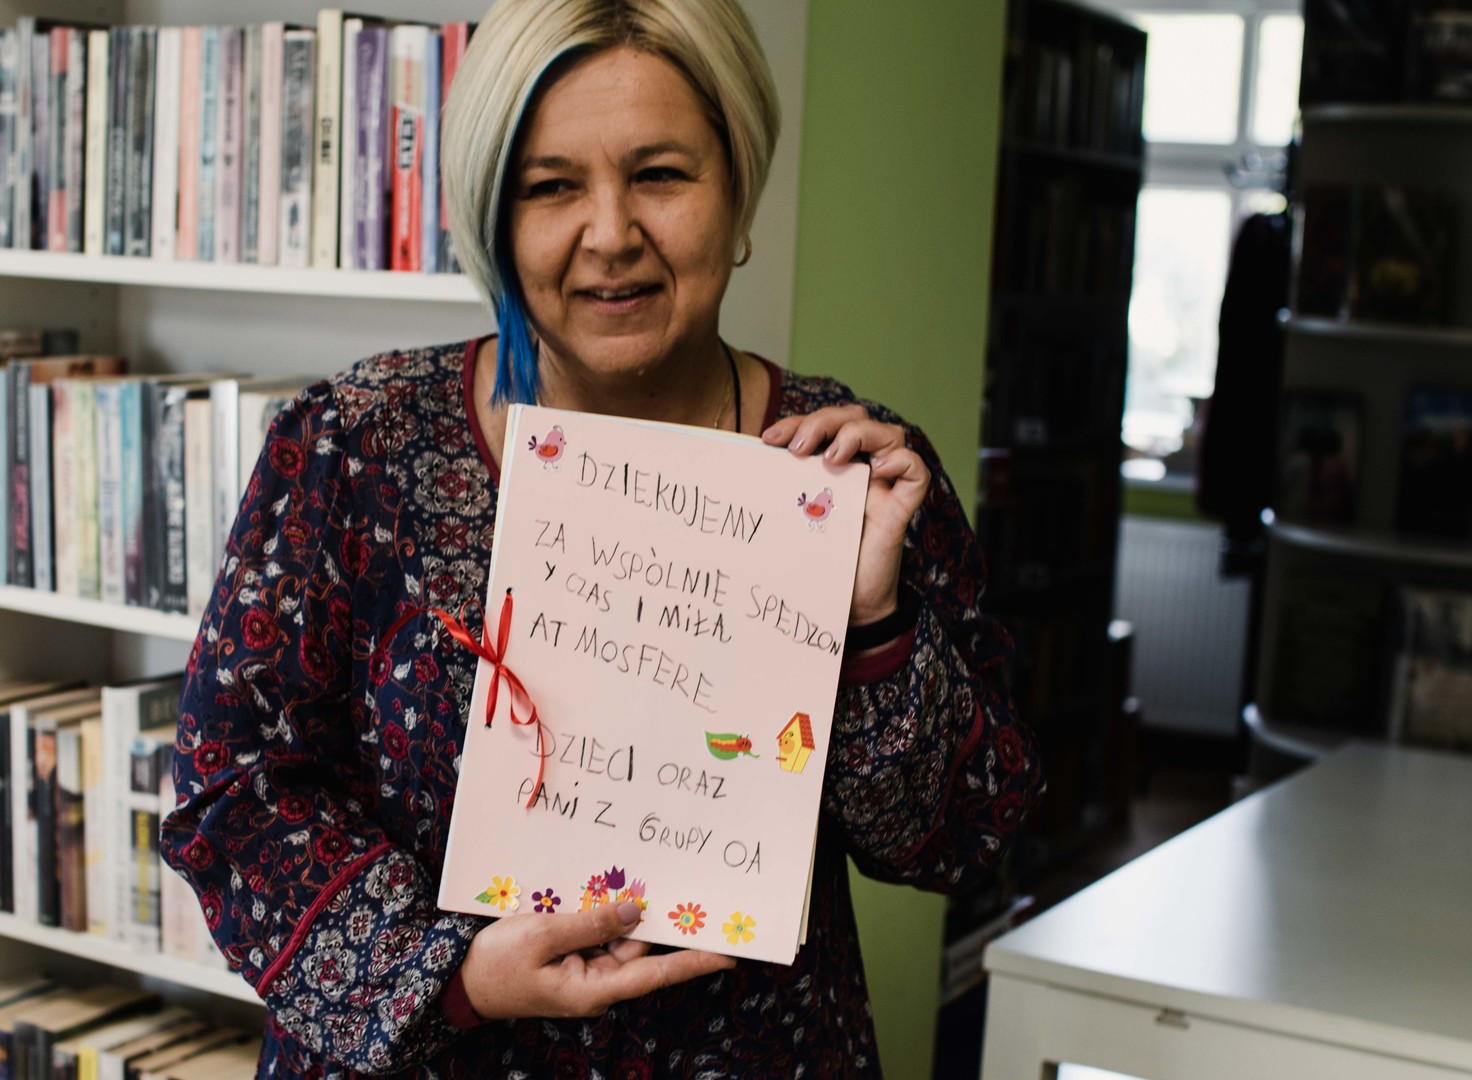 DZIĘKUJEMY
ZA WSPÒLNIE SPĘDZON
Y CZAS I MIŁĄ
ATMOSFERĘ
DZIECI ORAZ
PANi Z GRUPY OA